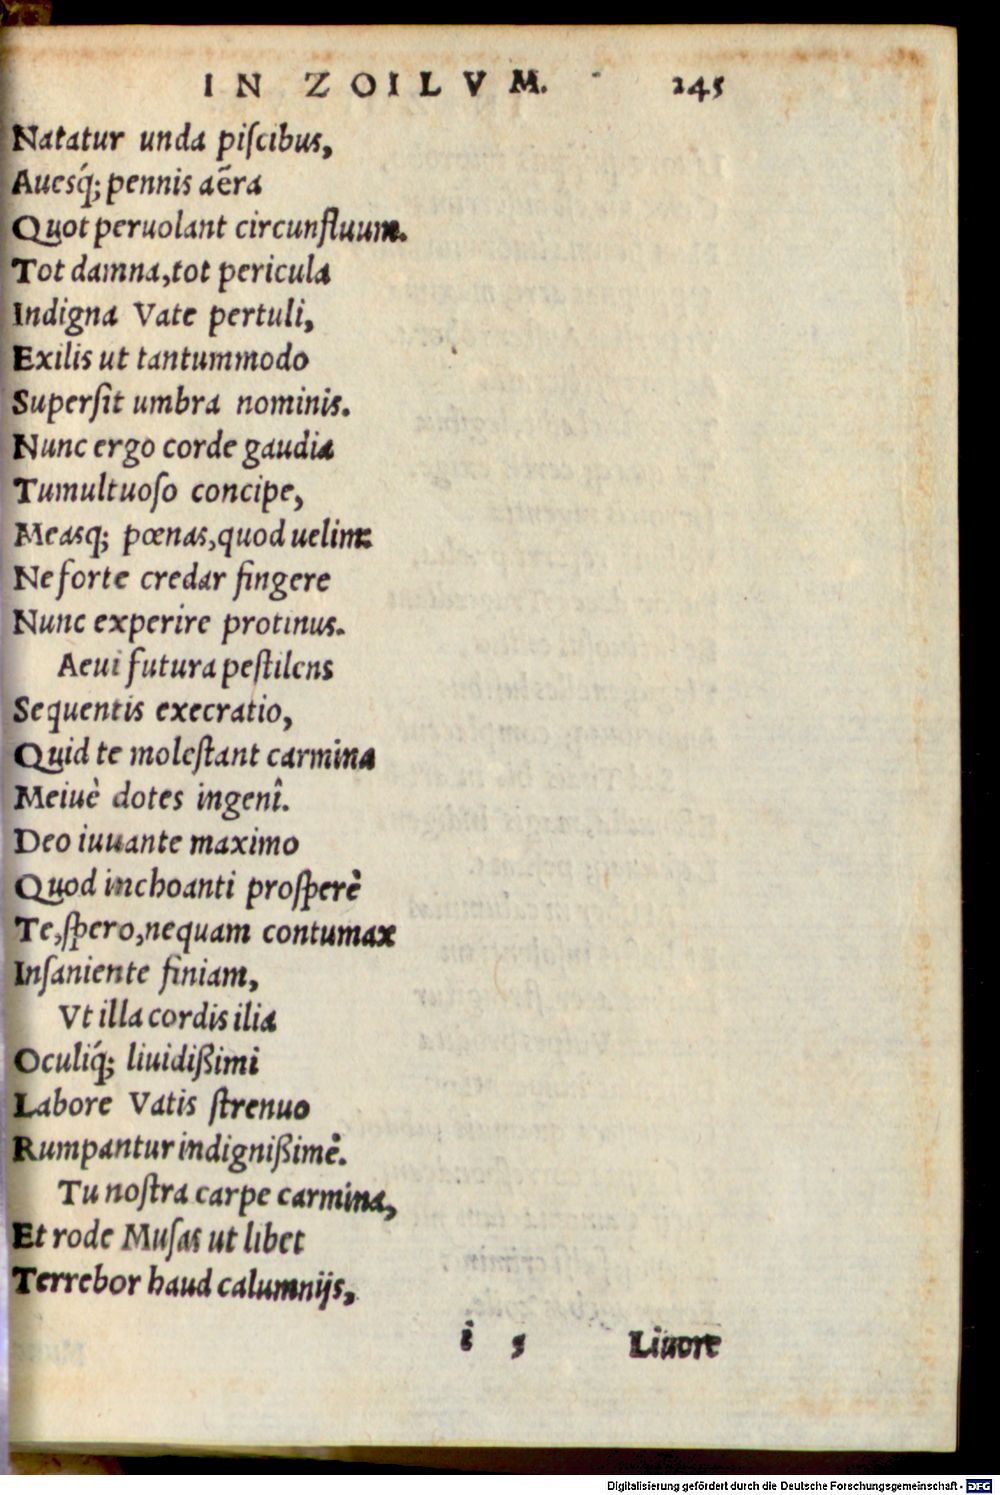 IN ZOILVM. 245
Natatur unda piſcibus,
Auesq́; pennis aëra
Quot peruolant circunfluum.
Tot damna, tot pericula
Indigna Vate pertuli,
Exilis ut tantummodo
Superſit umbra nominis.
Nunc ergo corde gaudia
Tumultuoſo concipe,
Measq; pœnas, quod uelim:
Ne forte credar fingere
Nunc experire protinus.
Aeui futura peſtilens
Sequentis execratio,
Quid te moleſtant carmina
Meiuè dotes ingenî.
Deo iuuante maximo
Quod inchoanti proſperè
Te, ſpero, nequam contumax
Inſaniente finiam,
Vt illa cordis ilia
Oculiq́; liuidißimi
Labore Vatis ſtrenuo
Rumpantur indignißimè.
Tu noſtra carpe carmina,
Et rode Muſas ut libet
Terrebor haud calumnijs,
i 5 Liuore
Digitalisierung gefördert durch die Deutsche Forschungsgemeinschaft - DFG